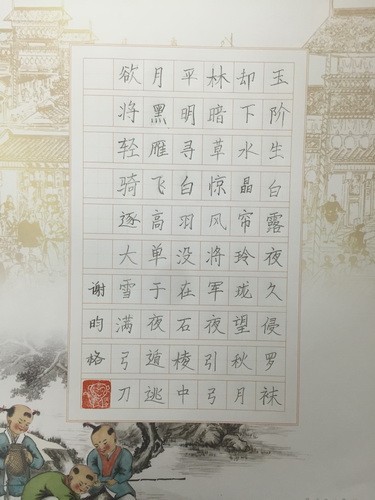 玉阶生白露夜久侵罗袜
却下水晶帘玲珑望秋月
林暗草惊风将军夜引弓
平明寻白羽没在石棱中
月黑雁飞高单于夜遁逃
欲将轻骑逐大雪满弓刀
谢昀格